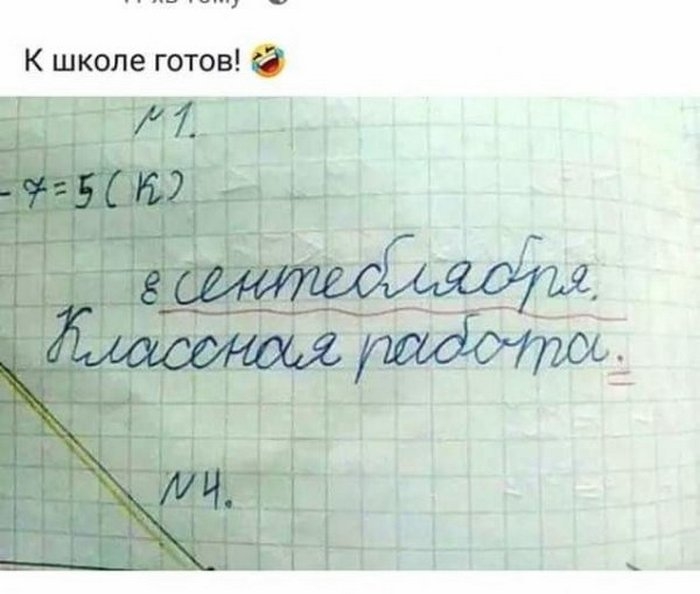 К школе готов! 🤣
№ 1.
- 7 = 5 ( К )
8 сентеблядбря.
Классная работа.
№ 4.